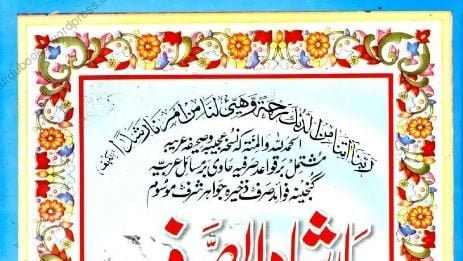 ربنا اتنا من لدنك رحمة وهيئ لنا من امرنا رشدا (الكهف)
الحمد لله والمنة کہ نسخہ عجیبہ وصحیفہ عربیہ
مشتمل بر قواعد صرفیہ حاوی بر مسائل عربیہ
گنجینہ فوائد صرف ذخیرہ جواہر شرف موسوم
ارشاد الصرف